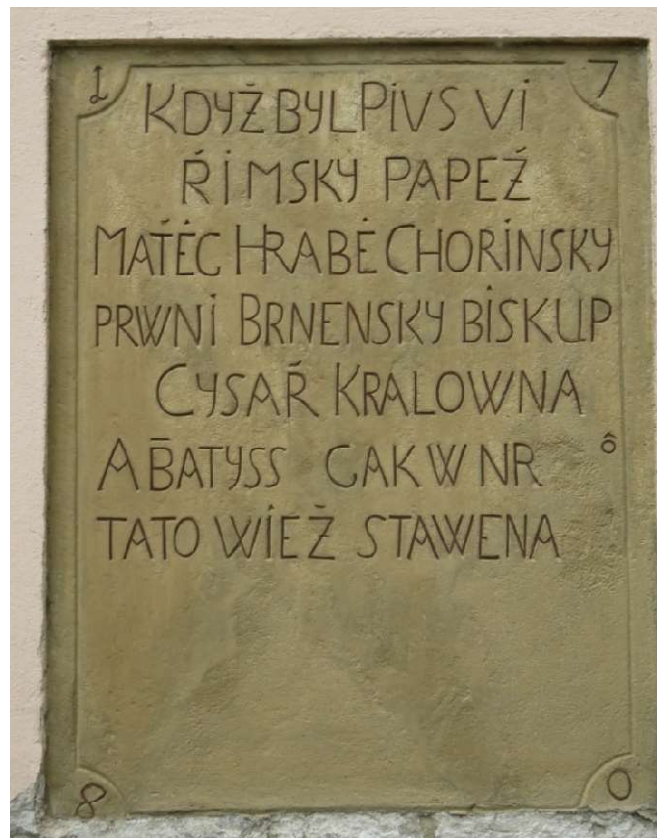 1 7
KDYŽ BYL PIVS VI
ŘIMSKY PAPEŽ
MATĖG HRABĖ CHORINSKY
PRWNI BRNENSKY BISKUP
CYSAŘ KRALOWNA
A BATYSS GAK W NR ô
TATO WIEŽ STAWENA
8 0